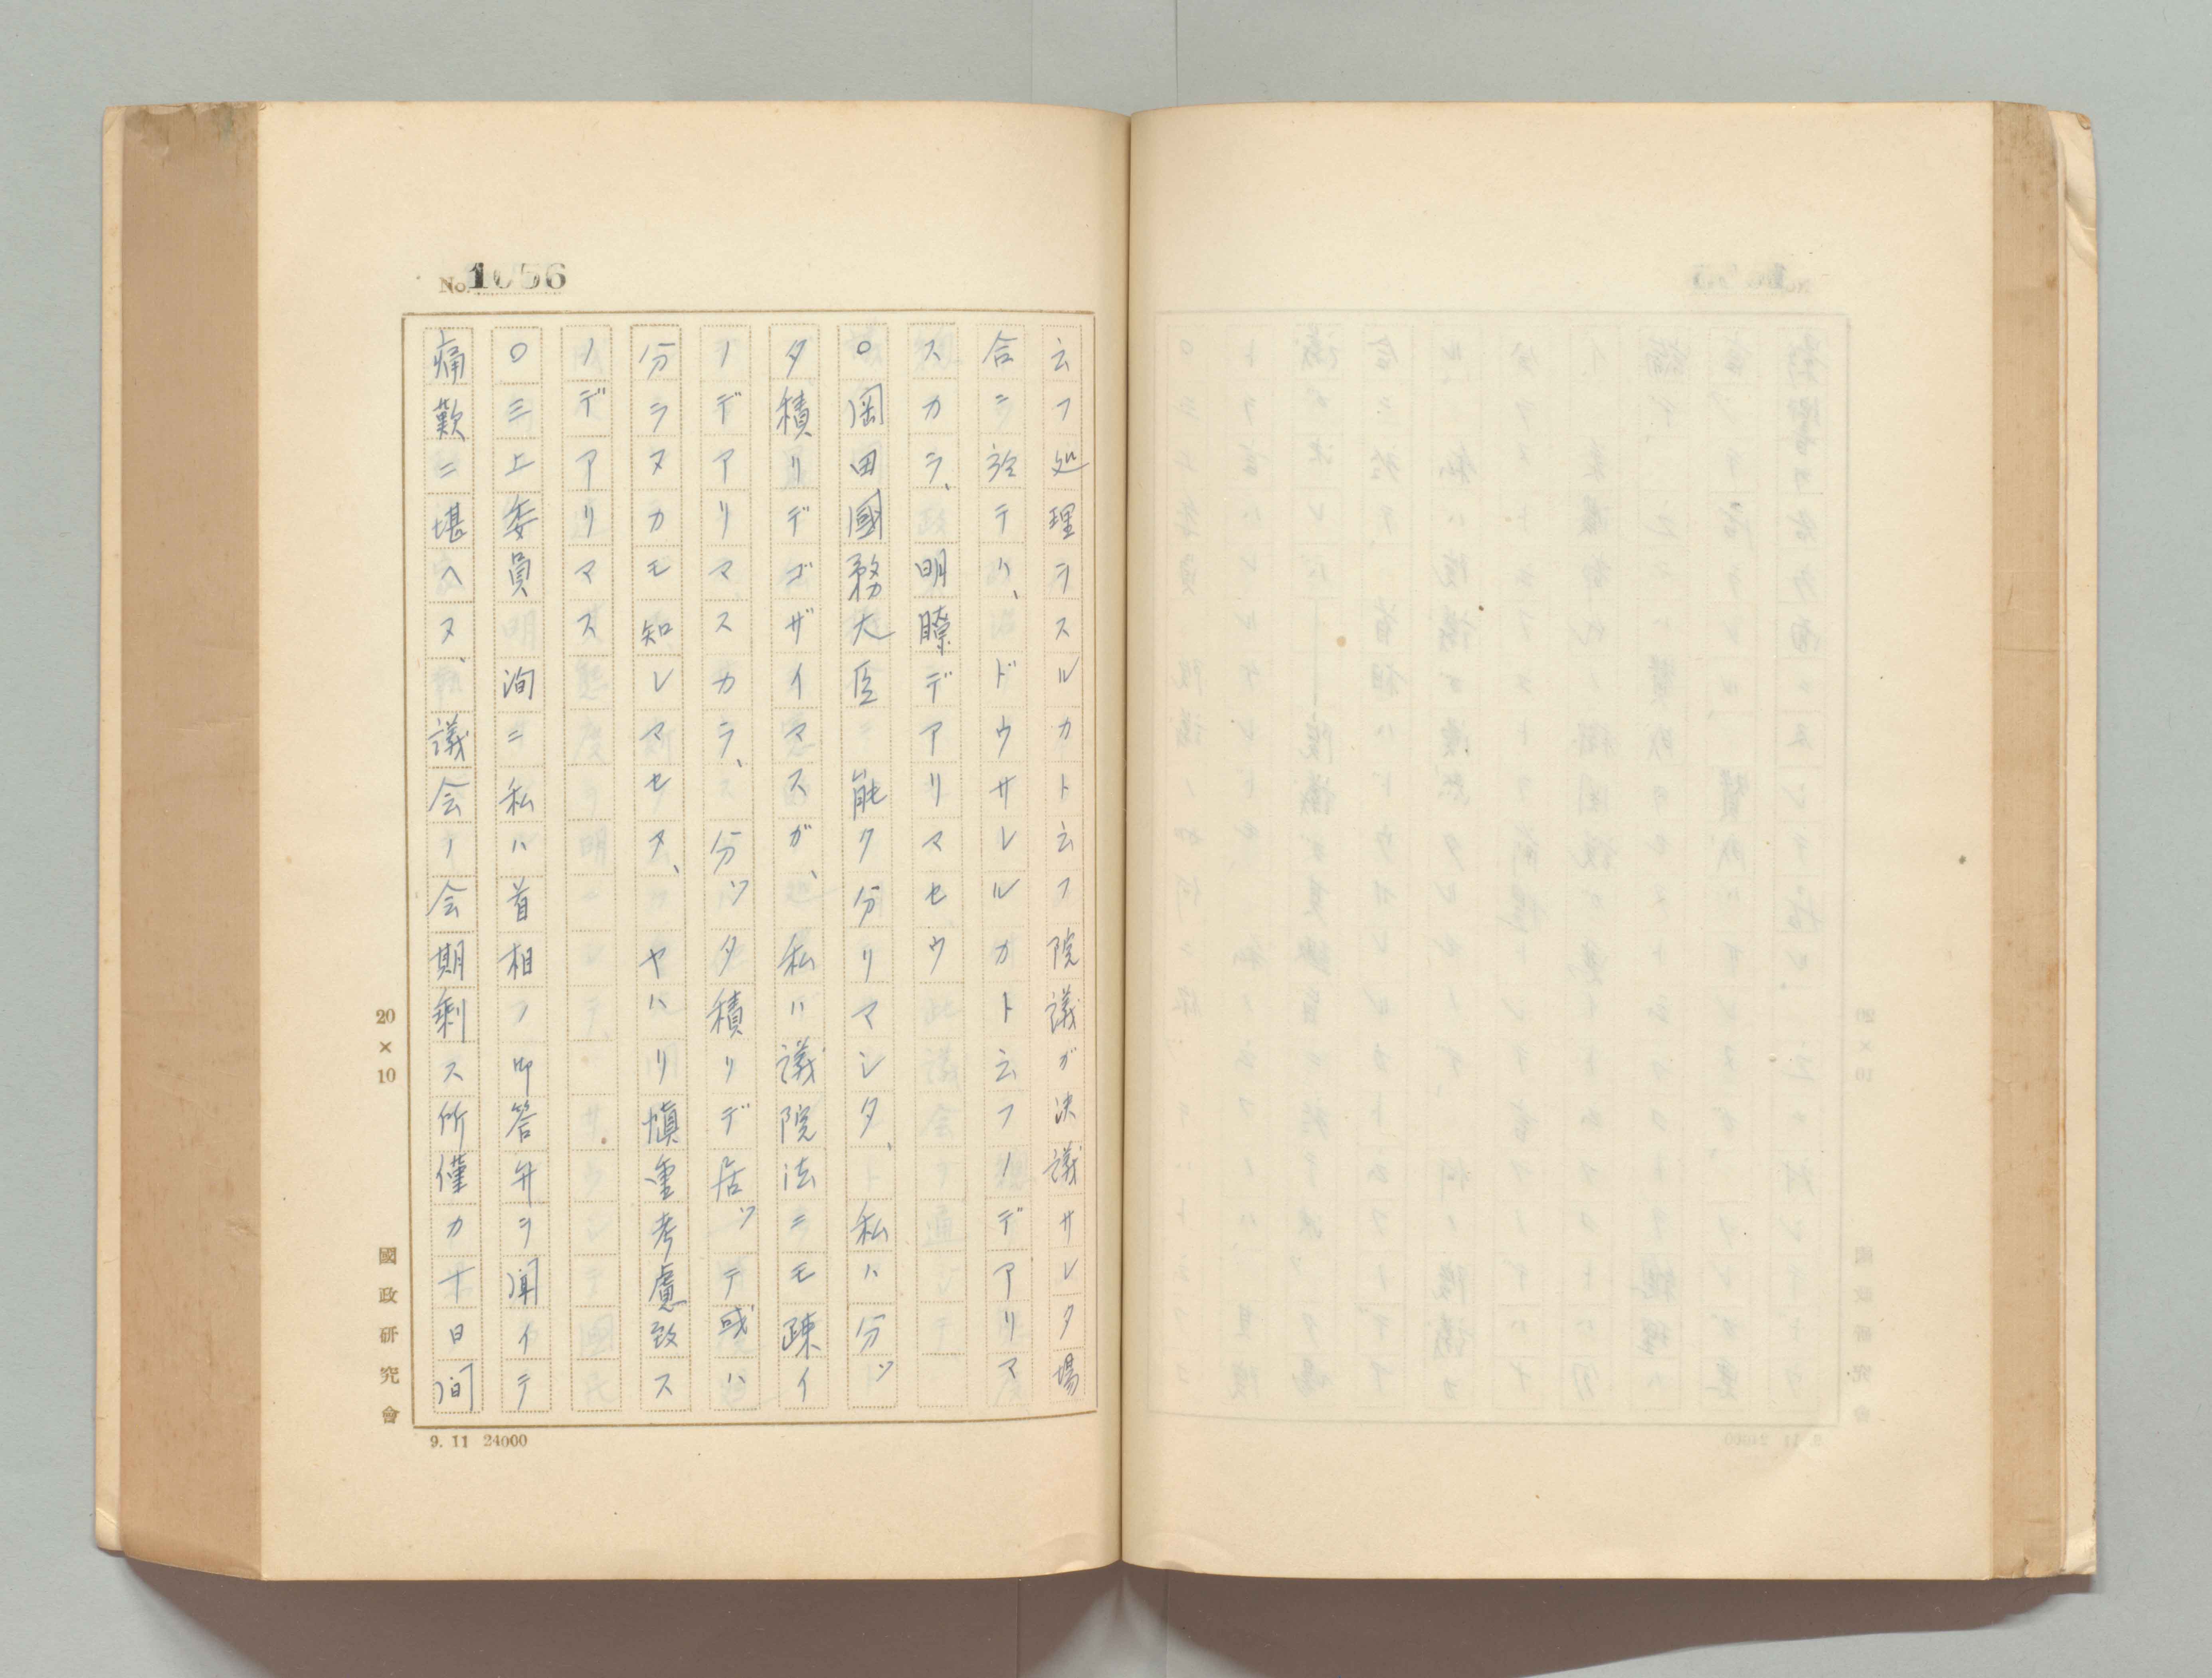 No. 1056
云フ処理ヲスルカト云フ院議ガ決議サレタ場
合ニ於テハ、ドウサレルカト云フノデアリマ
スカラ、明瞭デアリマセウ
○岡田國務大臣 能ク分リマシタ、私ハ分ッ
タ積リデゴザイマスガ、私ハ議院法ニモ疎イ
ノデアリマスカラ、分ッタ積リデ居ッテ或ハ
分ラヌカモ知レマセヌ、ヤハリ慎重考慮致ス
ノデアリマス
○三上委員 洵ニ私ハ首相ノ御答弁ヲ聞イテ
痛歎ニ堪ヘヌ、議会ノ会期剰ス所僅カ十日間
20×10
國政研究會
9. 11 24000